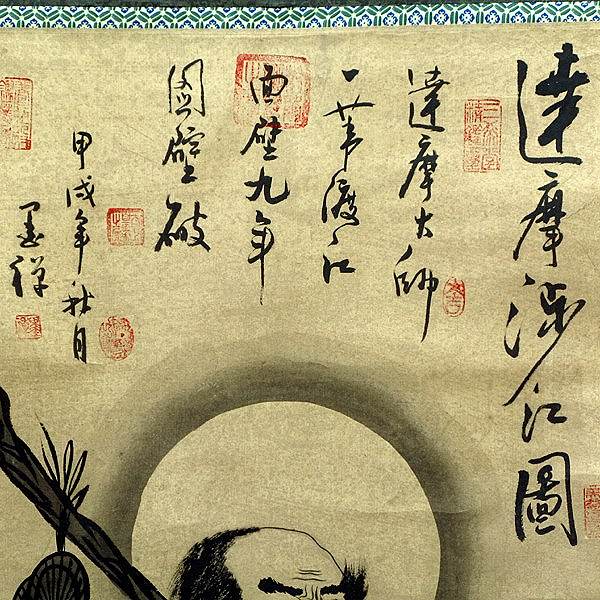 達摩渉江圖
達摩大師
一苇渡江
面壁九年
図壁破
甲戌年秋月
墨祥